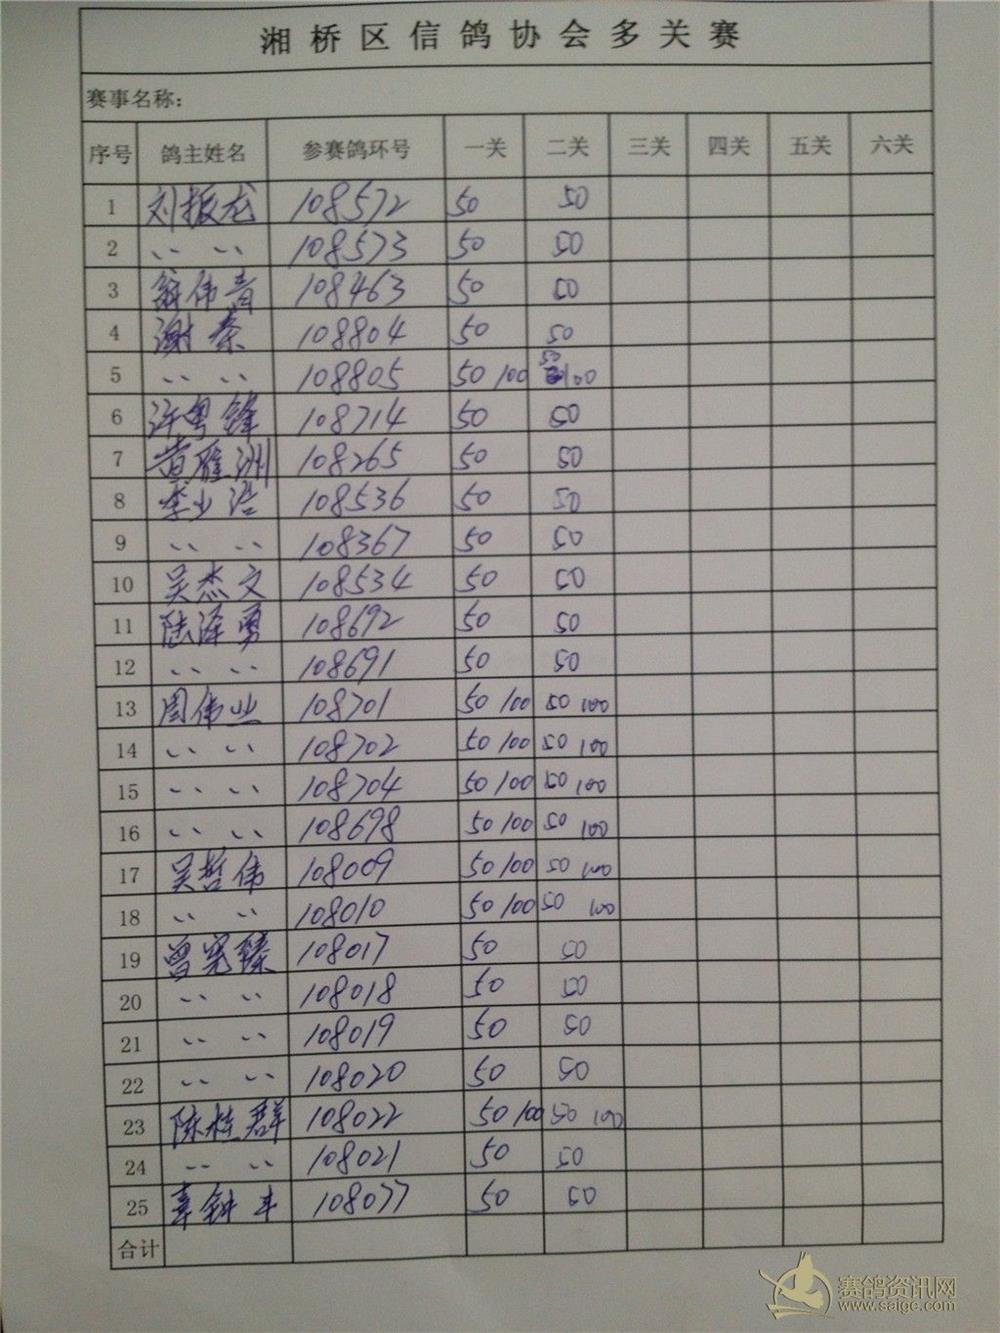 湘桥区信鸽协会多关赛
赛事名称:
序号 鸽主姓名 参赛鸽环号 一关 二关 三关 四关 五关 六关
1 刘振龙 108572 50 50
2 〃 〃 108573 50 50
3 翁伟青 108463 50 50
4 谢秦 108804 50 50
5 〃 〃 108805 50 100 50 100
6 许粤锋 108714 50 50
7 黄雁洲 108265 50 50
8 李少浩 108536 50 50
9 〃 〃 108367 50 50
10 吴杰文 108534 50 50
11 陆泽勇 108692 50 50
12 〃 〃 108691 50 50
13 周伟业 108701 50 100 50 100
14 〃 〃 108702 50 100 50 100
15 〃 〃 108704 50 100 50 100
16 〃 〃 108698 50 100 50 100
17 吴哲伟 108009 50 100 50 100
18 〃 〃 108010 50 100 50 100
19 曾宪臻 108017 50 50
20 〃 〃 108018 50 50
21 〃 〃 108019 50 50
22 〃 〃 108020 50 50
23 陈桂群 108022 50 100 50 100
24 〃 〃 108021 50 50
25 辜钟丰 108077 50 50
合计
赛鸽资讯网
www.saige.com